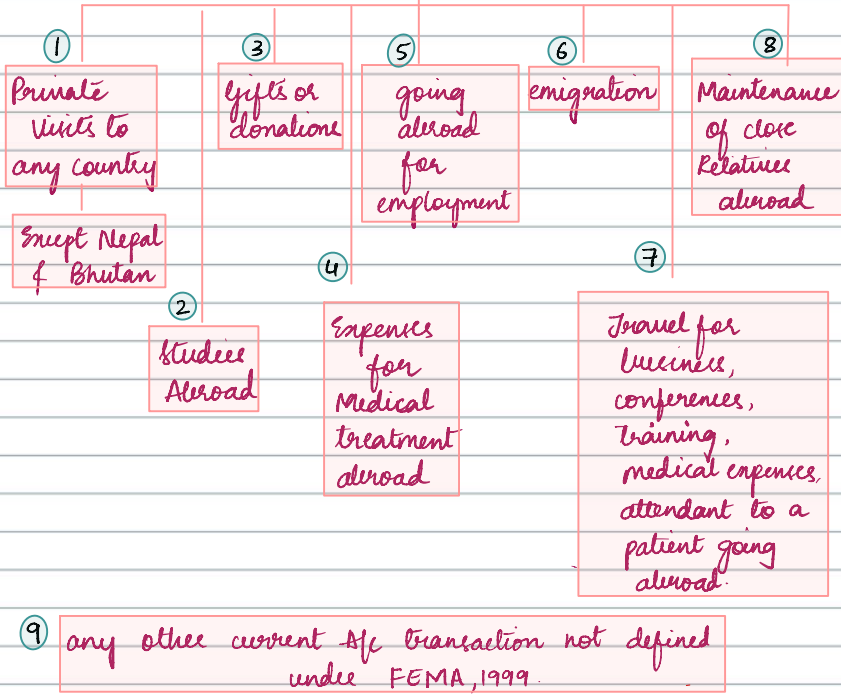 1
Private
Visits to
any country
Except Nepal
& Bhutan
2
Studies
Abroad
3
Gifts or
donations
4
Expenses
for
Medical
treatment
abroad
5
going
abroad
for
employment
6
emigration
7
Travel for
business,
conferences,
Training,
medical expenses,
attendant to a
patient going
abroad.
8
Maintenance
of close
Relatives
abroad
9
any other current A/c transaction not defined
under FEMA, 1999.